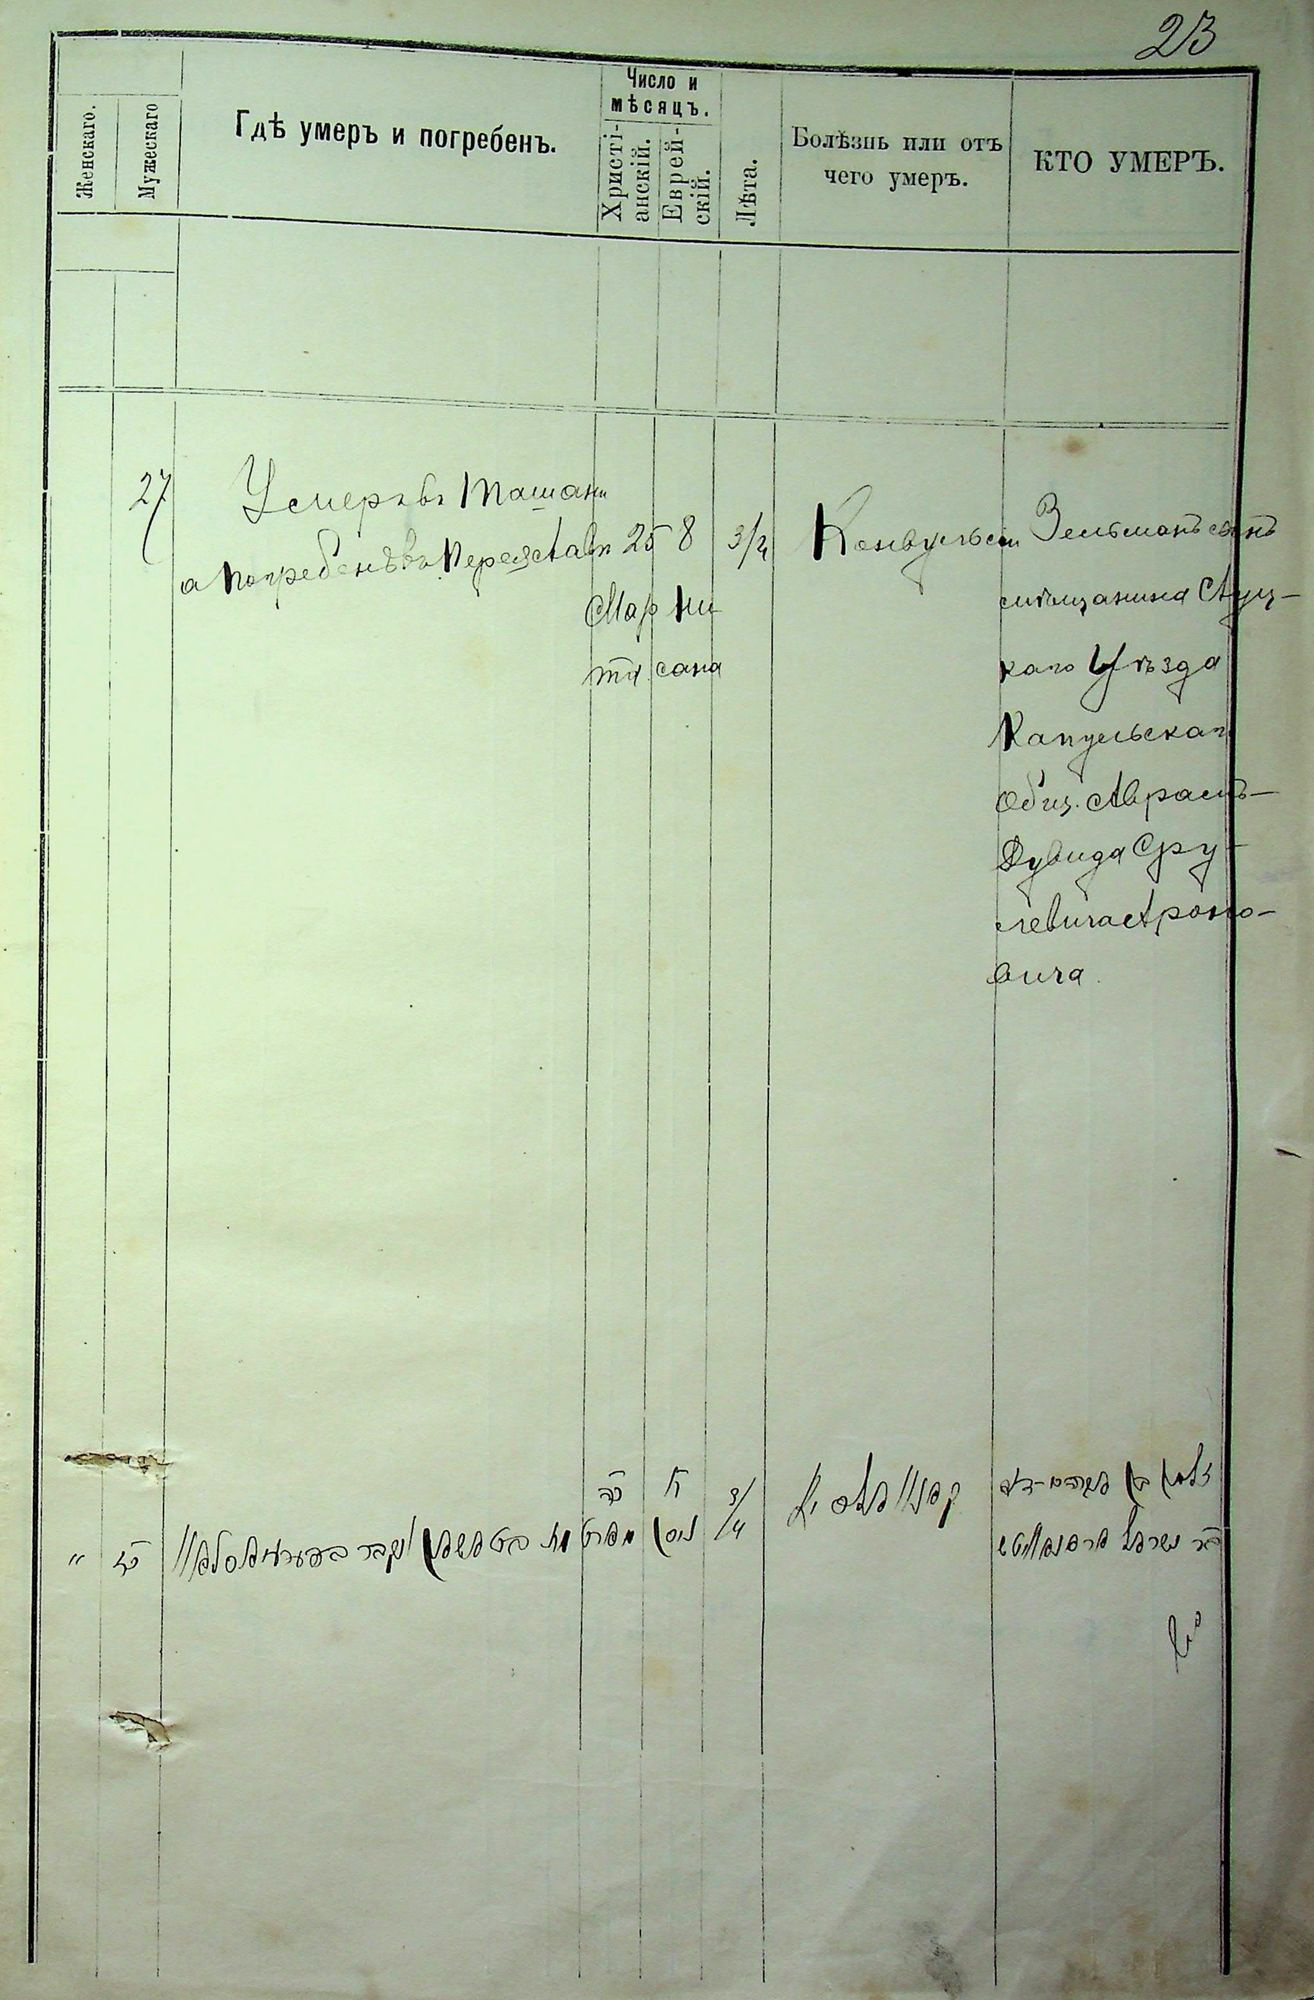 23
Женскаго.
Мужескаго
Гдѣ умеръ и погребенъ.
Число и
мѣсяцъ.
Христі-
анскій.
Еврей-
скій.
Лѣта.
Болѣзнь или отъ
чего умеръ.
КТО УМЕРЪ.
27
Умеръ въ Ташани
а погребенъ въ Переяславѣ
25
Мар
та
8
Ни
сана
3/4
Конвульсіи
Зельманъ сынъ
мѣщанина Слуц-
каго Уѣзда
Капульскаго
Общ. Аврамъ-
Дувида Сру-
левича Ароно-
вича
"
כז
מת
כה
מארט
ח
ניסן
3/4
זלמן בן אברהם-דוד